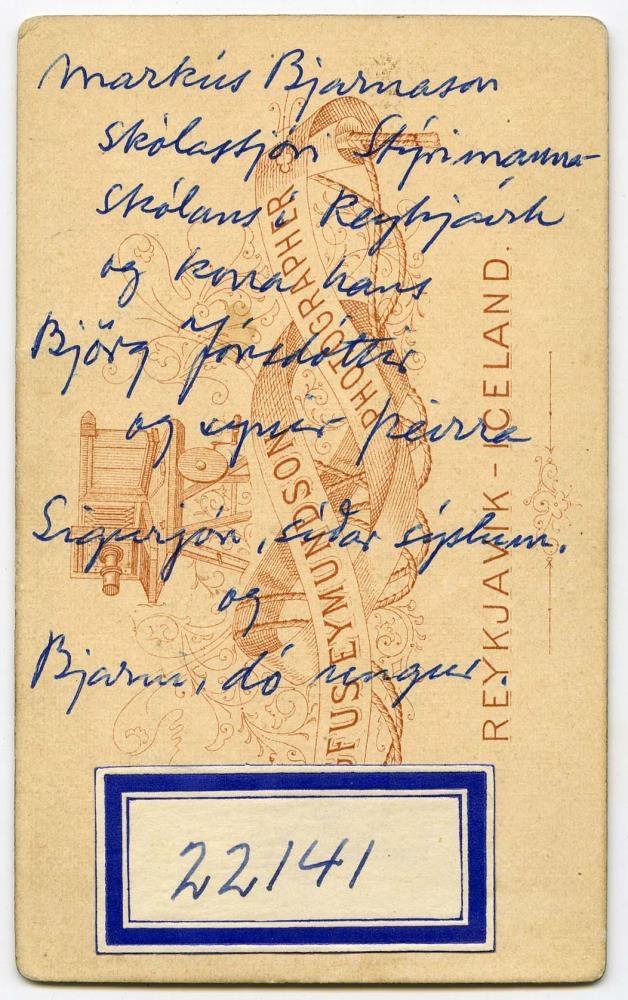 Markús Bjarnason
Skólastjóri Stýrimanna-
skólans í Reykjavík
og kona hans
Björg Jónsdóttir
og synir þeirra
Sigurjón, síðar sýslum.
og
Bjarni, dó ungur.
FUS EYMUNDSON
PHOTOGRAPHER
REYKJAVIK - ICELAND.
22141